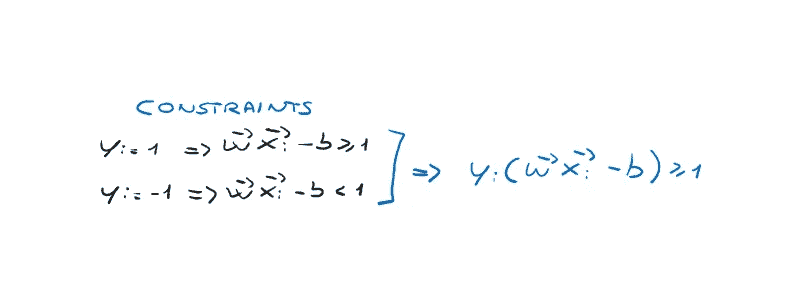 CONSTRAINTS
yᵢ = 1 => w⃗ x⃗ᵢ - b ≥ 1
yᵢ = -1 => w⃗ x⃗ᵢ - b < 1
] => yᵢ (w⃗ x⃗ᵢ - b) ≥ 1